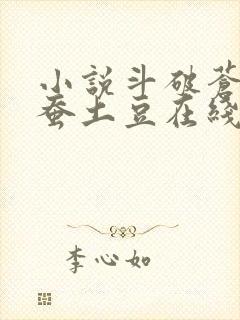 小說斗破蒼
蚕土豆在綫
李心如